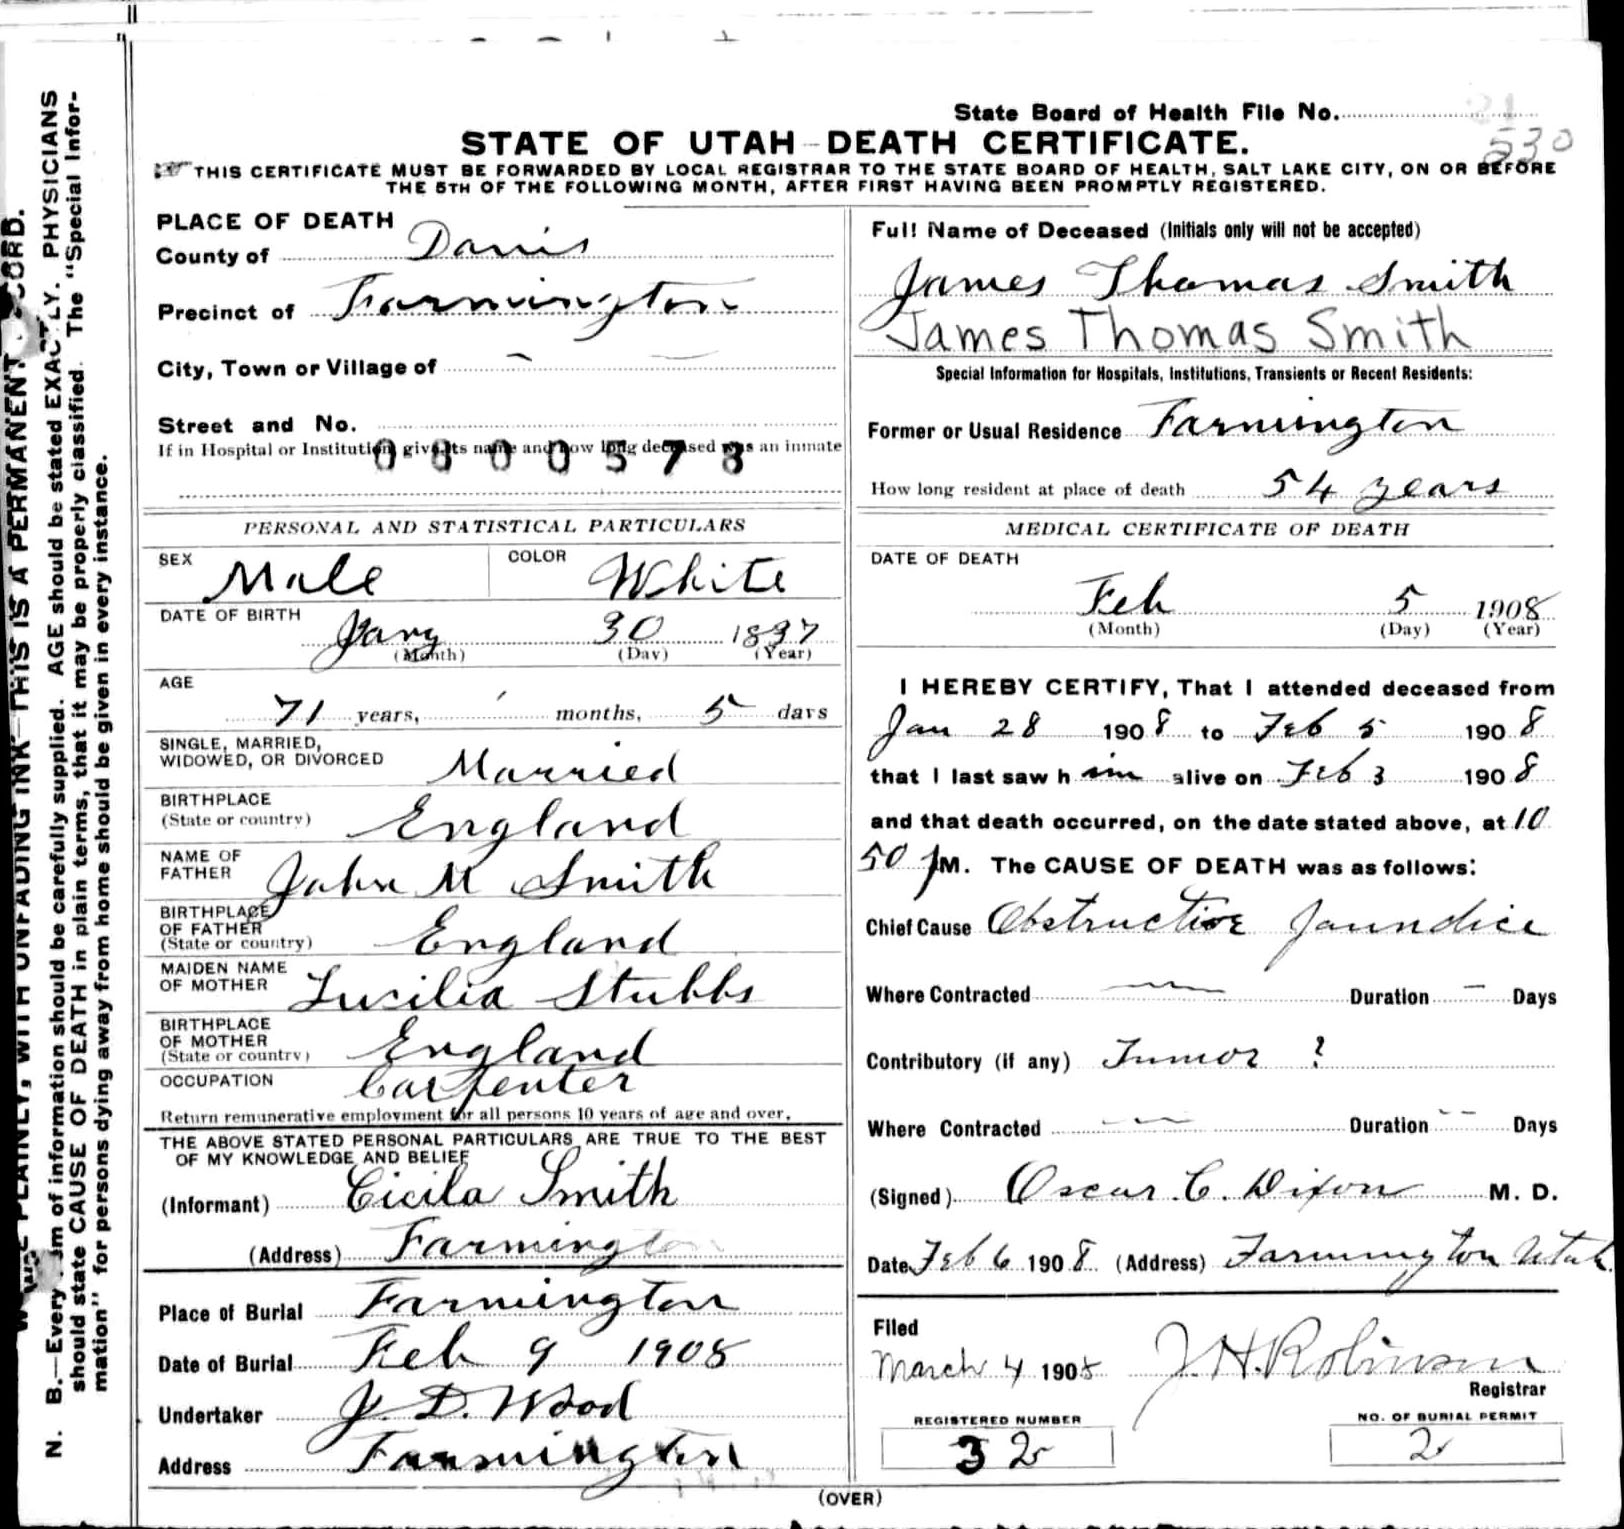 N. B.—Every item of information should be carefully supplied. AGE should be stated EXACTLY. PHYSICIANS
should state CAUSE OF DEATH in plain terms, that it may be properly classified. The "Special Infor-
mation" for persons dying away from home should be given in every instance.
PLAINLY, WITH UNFADING INK—THIS IS A PERMANENT RECORD.
State Board of Health File No.
530
STATE OF UTAH—DEATH CERTIFICATE.
THIS CERTIFICATE MUST BE FORWARDED BY LOCAL REGISTRAR TO THE STATE BOARD OF HEALTH, SALT LAKE CITY, ON OR BEFORE
THE 5TH OF THE FOLLOWING MONTH, AFTER FIRST HAVING BEEN PROMPTLY REGISTERED.
PLACE OF DEATH
County of Davis
Precinct of Farmington
City, Town or Village of — —
Street and No.
If in Hospital or Institution, give its name and how long deceased was an inmate
0800578
PERSONAL AND STATISTICAL PARTICULARS
SEX Male COLOR White
DATE OF BIRTH
Jany 30 1837
(Month) (Day) (Year)
AGE
71 years, months, 5 days
SINGLE, MARRIED,
WIDOWED, OR DIVORCED Married
BIRTHPLACE
(State or country) England
NAME OF
FATHER John M Smith
BIRTHPLACE
OF FATHER
(State or country) England
MAIDEN NAME
OF MOTHER Lucilia Stubbs
BIRTHPLACE
OF MOTHER
(State or country) England
OCCUPATION Carpenter
Return remunerative employment for all persons 10 years of age and over.
THE ABOVE STATED PERSONAL PARTICULARS ARE TRUE TO THE BEST
OF MY KNOWLEDGE AND BELIEF
(Informant) Cicila Smith
(Address) Farmington
Place of Burial Farmington
Date of Burial Feb 9 1908
Undertaker J. D. Wood
Address Farmington
Full Name of Deceased (Initials only will not be accepted)
James Thomas Smith
James Thomas Smith
Special Information for Hospitals, Institutions, Transients or Recent Residents:
Former or Usual Residence Farmington
How long resident at place of death 54 years
MEDICAL CERTIFICATE OF DEATH
DATE OF DEATH
Feb 5 1908
(Month) (Day) (Year)
I HEREBY CERTIFY, That I attended deceased from
Jan 28 1908 to Feb 5 1908
that I last saw him alive on Feb 3 1908
and that death occurred, on the date stated above, at 10
50 PM. The CAUSE OF DEATH was as follows:
Chief Cause Obstructive Jaundice
Where Contracted — Duration — Days
Contributory (if any) Tumor ?
Where Contracted — Duration -- Days
(Signed) Oscar C. Dixon M. D.
Date Feb 6 1908 (Address) Farmington Utah
Filed
March 4 1908 J. H. Robinson
Registrar
REGISTERED NUMBER
32
NO. OF BURIAL PERMIT
2
(OVER)